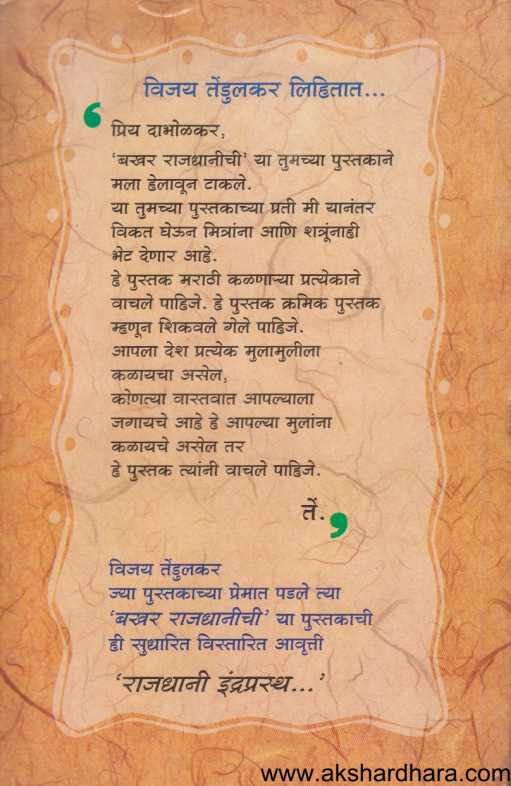 विजय तेंडुलकर लिहितात...
‘
प्रिय दाभोळकर,
‘बखर राजधानीची’ या तुमच्या पुस्तकाने
मला हेलावून टाकले.
या तुमच्या पुस्तकाच्या प्रती मी यानंतर
विकत घेऊन मित्रांना आणि शत्रूंनाही
भेट देणार आहे.
हे पुस्तक मराठी कळणाऱ्या प्रत्येकाने
वाचले पाहिजे. हे पुस्तक क्रमिक पुस्तक
म्हणून शिकवले गेले पाहिजे.
आपला देश प्रत्येक मुलामुलीला
कळायचा असेल,
कोणत्या वास्तवात आपल्याला
जगायचे आहे हे आपल्या मुलांना
कळायचे असेल तर
हे पुस्तक त्यांनी वाचले पाहिजे.
तें.’
विजय तेंडुलकर
ज्या पुस्तकाच्या प्रेमात पडले त्या
‘बखर राजधानीची’ या पुस्तकाची
ही सुधारित विस्तारित आवृत्ती
‘राजधानी इंद्रप्रस्थ...’
www.akshardhara.com